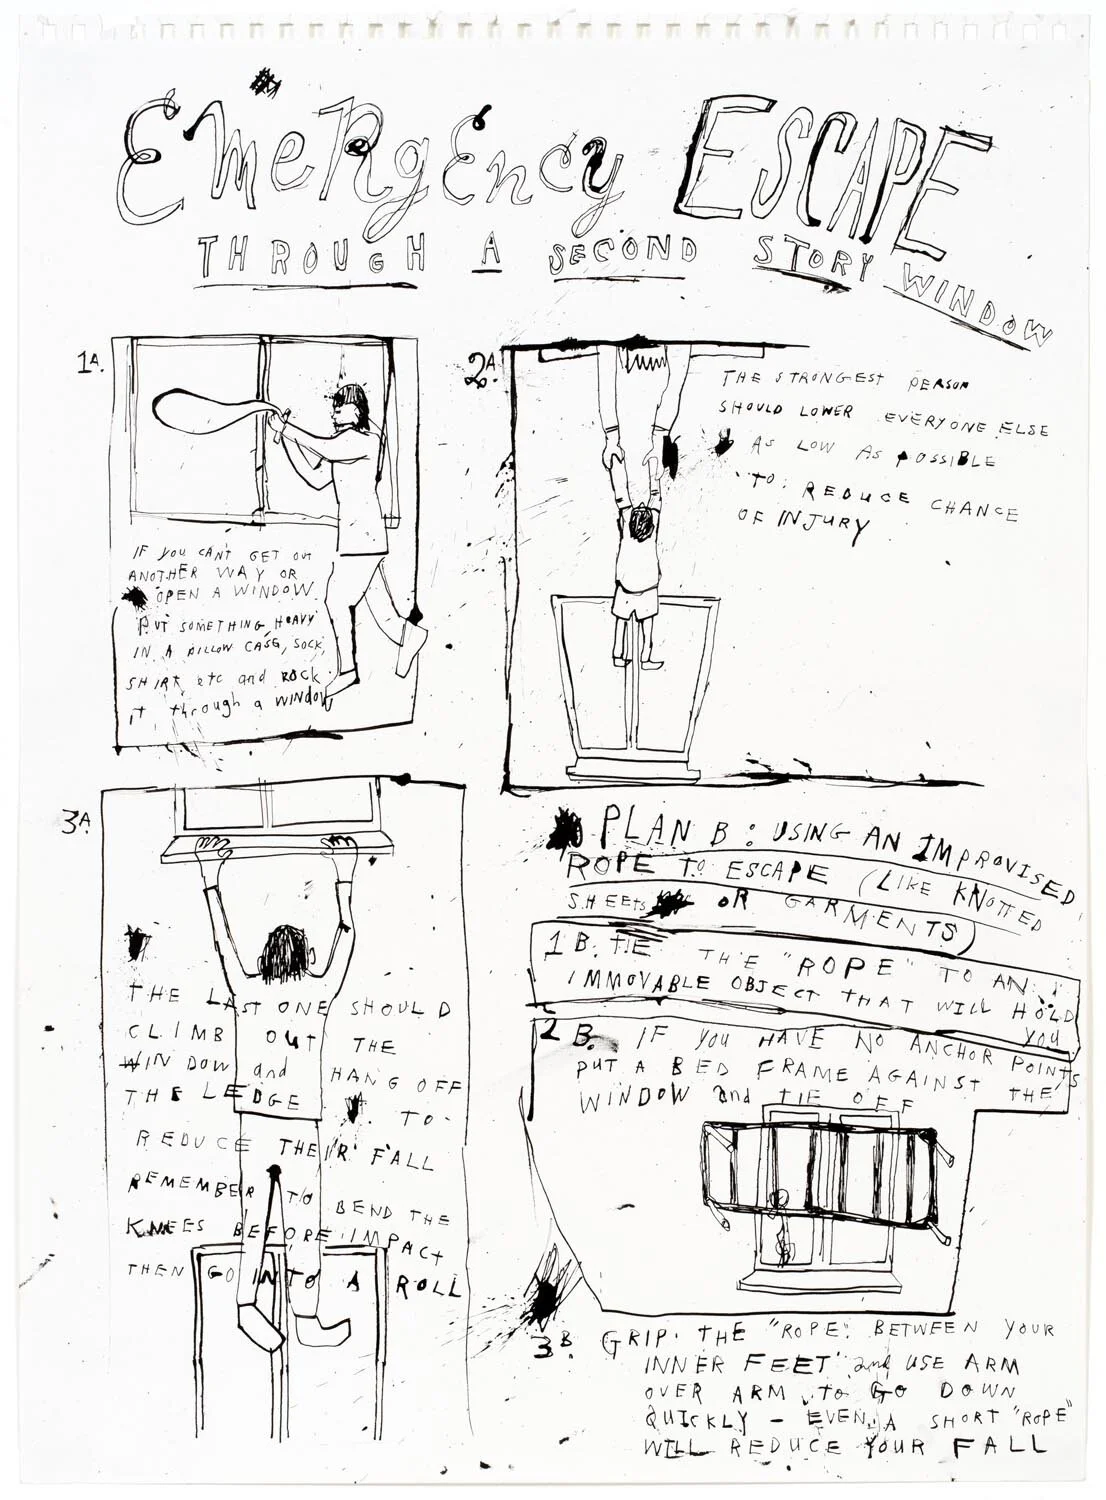 EmeRgEncy ESCAPE
THROUGH A SECOND STORY WINDOW
1A.
IF YOU CAN'T GET OUT
ANOTHER WAY OR
OPEN A WINDOW
PUT SOMETHING HEAVY
IN A PILLOW CASE, SOCK,
SHIRT etc and ROCK
iT through a WINDOW
2A.
THE STRONGEST PERSON
SHOULD LOWER EVERYONE ELSE
AS LOW AS POSSIBLE
TO REDUCE CHANCE
OF INJURY
3A.
THE LAST ONE SHOULD
CLIMB OUT THE
WINDOW and HANG OFF
THE LEDGE TO
REDUCE THEIR FALL
REMEMBER TO BEND THE
KNEES BEFORE IMPACT
THEN GO INTO A ROLL
PLAN B: USING AN IMPROVISED
ROPE TO ESCAPE (LIKE KNOTTED
SHEETS OR GARMENTS)
1B. TIE THE "ROPE" TO AN
IMMOVABLE OBJECT THAT WILL HOLD
YOU
2B. IF YOU HAVE NO ANCHOR POINTS
PUT A BED FRAME AGAINST THE
WINDOW and TIE OFF
3B. GRIP THE "ROPE" BETWEEN YOUR
INNER FEET and USE ARM
OVER ARM TO GO DOWN
QUICKLY - EVEN A SHORT "ROPE"
WILL REDUCE YOUR FALL